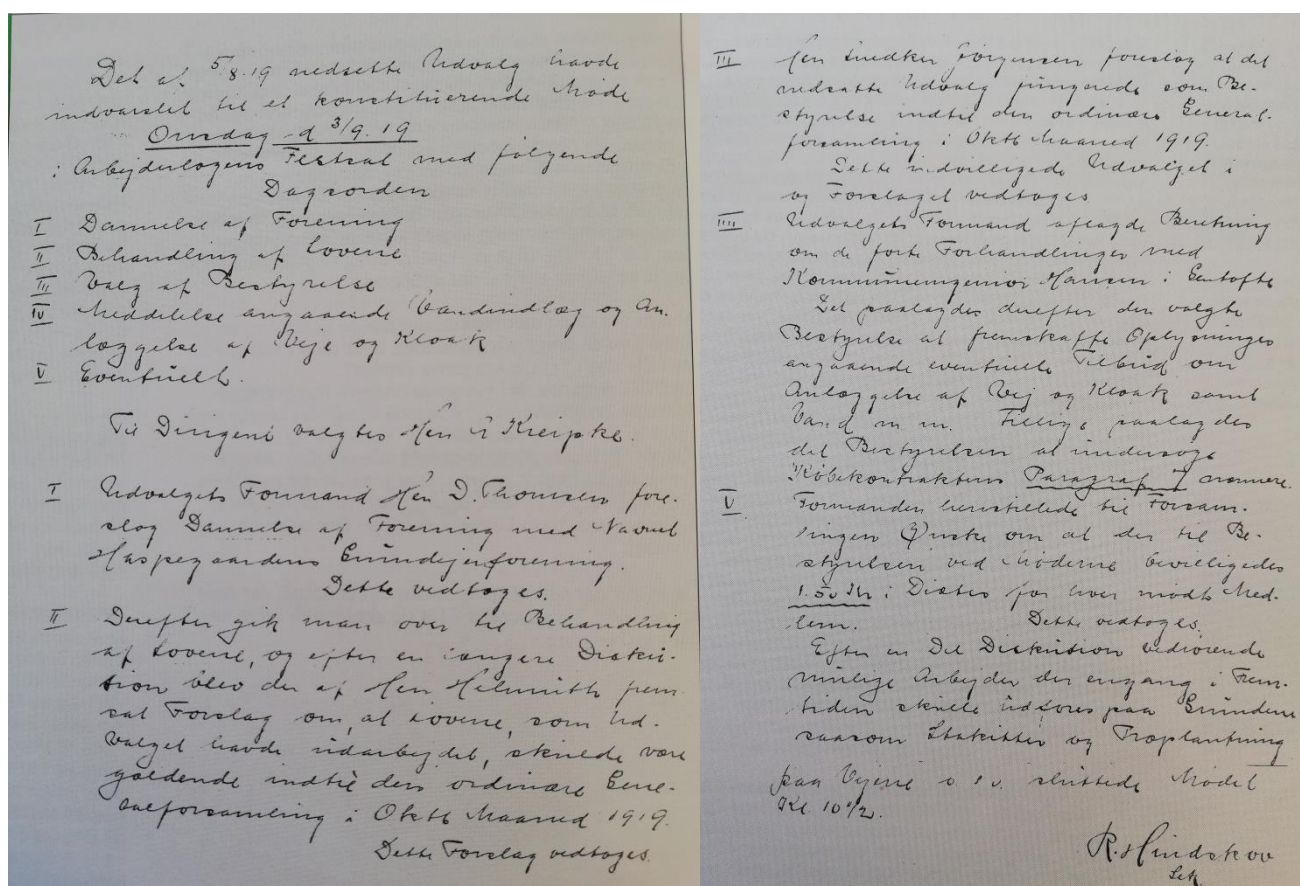 Det af 5/8.19 nedsatte Udvalg havde
indvarslet til et konstituerende Møde
Onsdag d 3/9.19
i Arbejderlogens Festsal med følgende
Dagsorden
I Dannelse af Forening
II Behandling af Lovene
III Valg af Bestyrelse
IV Meddelelse angaaende Vandindlæg og An-
læggelse af Veje og Kloak
V Eventuelt.
Til Dirigent valgtes Herr Kreipke.
I Udvalgets Formand Herr D. Thomsen fore-
slog Dannelse af Forening med Navnet
Maspegaardens Grundejerforening.
Dette vedtoges.
II Derefter gik man over til Behandling
af Lovene, og efter en længere Disku-
tion blev der af Herr Helmuth frem-
sat Forslag om, at Lovene, som Ud-
valget havde udarbejdet, skulde være
gældende indtil den ordinære Gene-
ralforsamling i Oktb Maaned 1919.
Dette Forslag vedtoges.
III Herr Snedker Jørgensen foreslog at det
nedsatte Udvalg fungerede som Be-
styrelse indtil den ordinære General-
forsamling i Oktb Maaned 1919.
Dette indvilligede Udvalget i
og Forslaget vedtoges
IIII Udvalgets Formand aflagde Beretning
om de førte Forhandlinger med
Kommuneingeniør Hansen i Gentofte
Det paalagdes derefter den valgte
Bestyrelse at fremskaffe Oplysninger
angaaende eventuelle Tilbud om
Anlæggelse af Vej og Kloak samt
Vand m m. Tillige paalagdes
det Bestyrelsen at undersøge
Købekontraktens Paragraf 7 nærmere.
V Formanden henstillede til Forsam-
lingen Ønske om at der til Be-
styrelsen ved Møderne bevilligedes
1.50 Kr i Diæter for hver mødt Med-
lem. Dette vedtoges.
Efter en Del Diskution vedrørende
mulige Arbejder der engang i Frem-
tiden skulle udføres paa Grundene
saasom Stakitter og Træplantning
paa Vejene o s v. sluttede Mødet
Kl. 10 1/2.
R. Hindskov
Sek